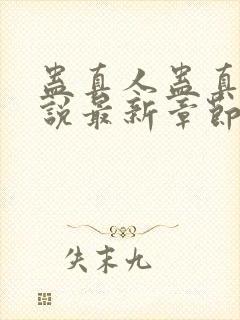 蛊真人蛊真
說最新章節
失末九